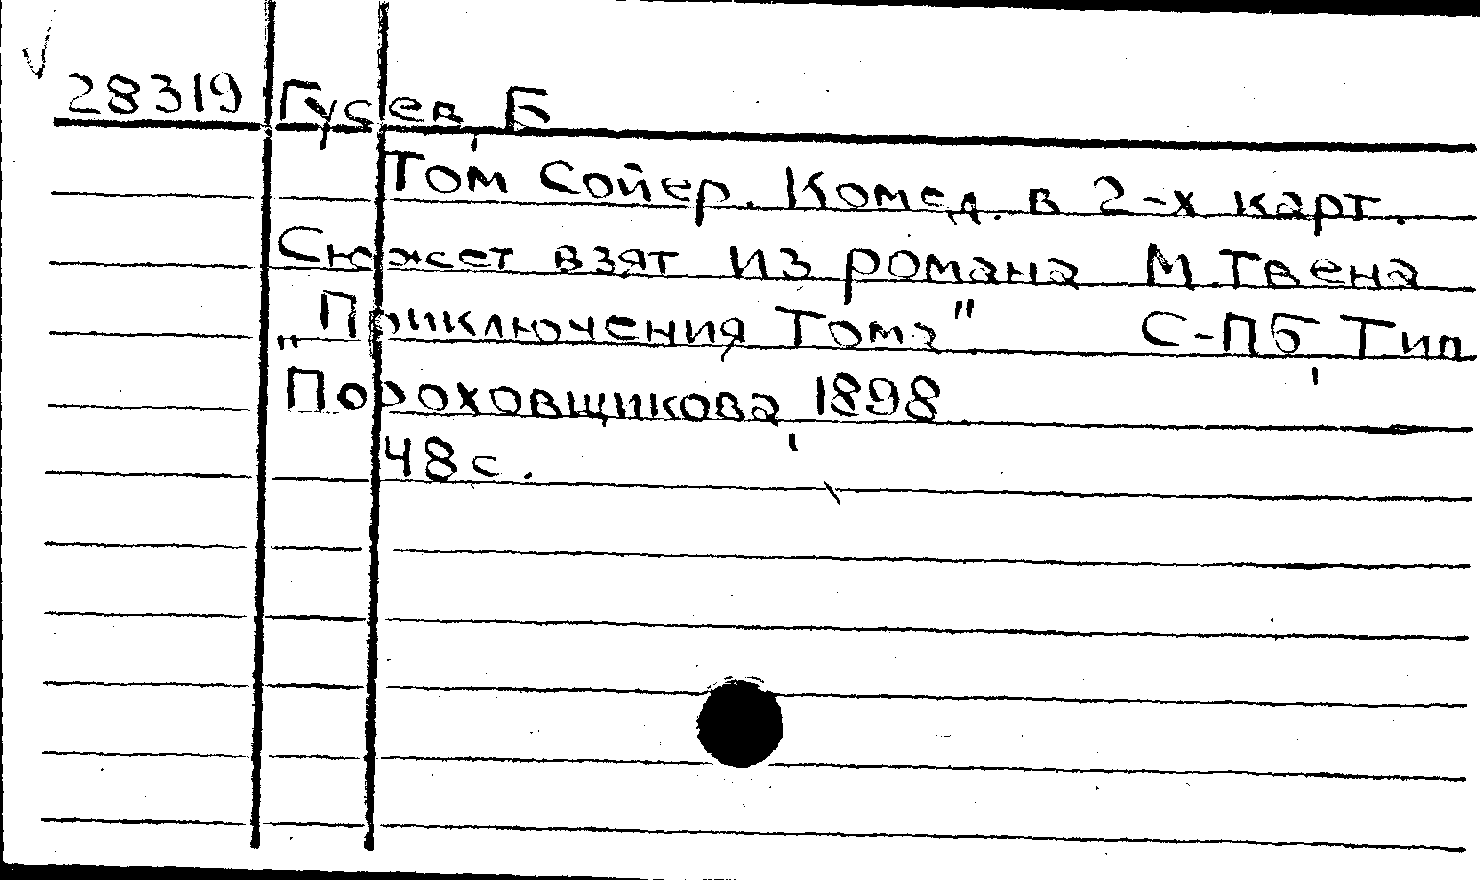 28319 Гусев, Б
Том Сойер. Комед. в 2-х карт.
Сюжет взят из романа М.Твена
„Приключения Тома" С-Пб, Тип
Пороховщикова, 1898
48 с.